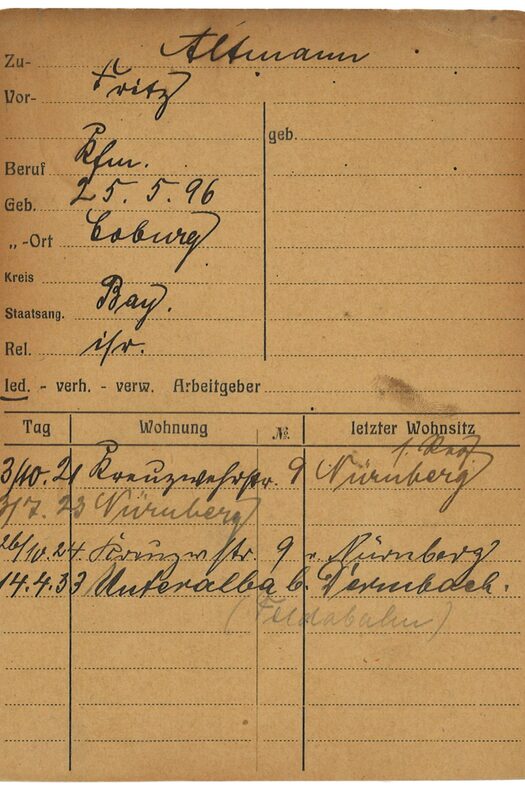 Zu- Altmann
Vor- Fritz
geb.
Beruf Kfm.
Geb. 25. 5. 96
„ -Ort Coburg
Kreis
Staatsang. Bay.
Rel. isr.
led. - verh. - verw. Arbeitgeber
Tag Wohnung № letzter Wohnsitz
3/10. 21 Kreuzwehrstr. 9 Nürnberg
3/7. 23 Nürnberg
26/10. 24. Kreuzwstr. 9 v. Nürnberg
14.4.33 Unteralba b. Dermbach.
(Feldabahn)